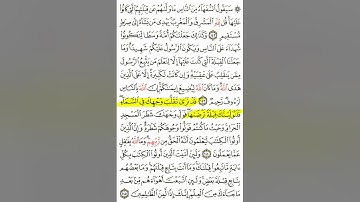 ۞ سَيَقُولُ ٱلسُّفَهَآءُ مِنَ ٱلنَّاسِ مَا وَلَّىٰهُمْ عَن قِبْلَتِهِمُ ٱلَّتِى كَانُوا۟
عَلَيْهَا ۚ قُل لِّلَّهِ ٱلْمَشْرِقُ وَٱلْمَغْرِبُ ۚ يَهْدِى مَن يَشَآءُ إِلَىٰ صِرَٰطٍ
مُّسْتَقِيمٍ ١٤٢ وَكَذَٰلِكَ جَعَلْنَٰكُمْ أُمَّةً وَسَطًا لِّتَكُونُوا۟
شُهَدَآءَ عَلَى ٱلنَّاسِ وَيَكُونَ ٱلرَّسُولُ عَلَيْكُمْ شَهِيدًا ۗ وَمَا
جَعَلْنَا ٱلْقِبْلَةَ ٱلَّتِى كُنتَ عَلَيْهَآ إِلَّا لِنَعْلَمَ مَن يَتَّبِعُ ٱلرَّسُولَ
مِمَّن يَنقَلِبُ عَلَىٰ عَقِبَيْهِ ۚ وَإِن كَانَتْ لَكَبِيرَةً إِلَّا عَلَى ٱلَّذِينَ
هَدَى ٱللَّهُ ۗ وَمَا كَانَ ٱللَّهُ لِيُضِيعَ إِيمَٰنَكُمْ ۚ إِنَّ ٱللَّهَ بِٱلنَّاسِ
لَرَءُوفٌ رَّحِيمٌ ١٤٣ قَدْ نَرَىٰ تَقَلُّبَ وَجْهِكَ فِى ٱلسَّمَآءِ ۖ
فَلَنُوَلِّيَنَّكَ قِبْلَةً تَرْضَىٰهَا ۚ فَوَلِّ وَجْهَكَ شَطْرَ ٱلْمَسْجِدِ
ٱلْحَرَامِ ۚ وَحَيْثُ مَا كُنتُمْ فَوَلُّوا۟ وُجُوهَكُمْ شَطْرَهُۥ ۗ وَإِنَّ ٱلَّذِينَ
أُوتُوا۟ ٱلْكِتَٰبَ لَيَعْلَمُونَ أَنَّهُ ٱلْحَقُّ مِن رَّبِّهِمْ ۗ وَمَا ٱللَّهُ بِغَٰفِلٍ
عَمَّا يَعْمَلُونَ ١٤٤ وَلَئِنْ أَتَيْتَ ٱلَّذِينَ أُوتُوا۟ ٱلْكِتَٰبَ بِكُلِّ
ءَايَةٍ مَّا تَبِعُوا۟ قِبْلَتَكَ ۚ وَمَآ أَنتَ بِتَابِعٍ قِبْلَتَهُمْ ۚ وَمَا بَعْضُهُم
بِتَابِعٍ قِبْلَةَ بَعْضٍ ۚ وَلَئِنِ ٱتَّبَعْتَ أَهْوَآءَهُم مِّنۢ بَعْدِ مَا
جَآءَكَ مِنَ ٱلْعِلْمِ ۙ إِنَّكَ إِذًا لَّمِنَ ٱلظَّٰلِمِينَ ١٤٥